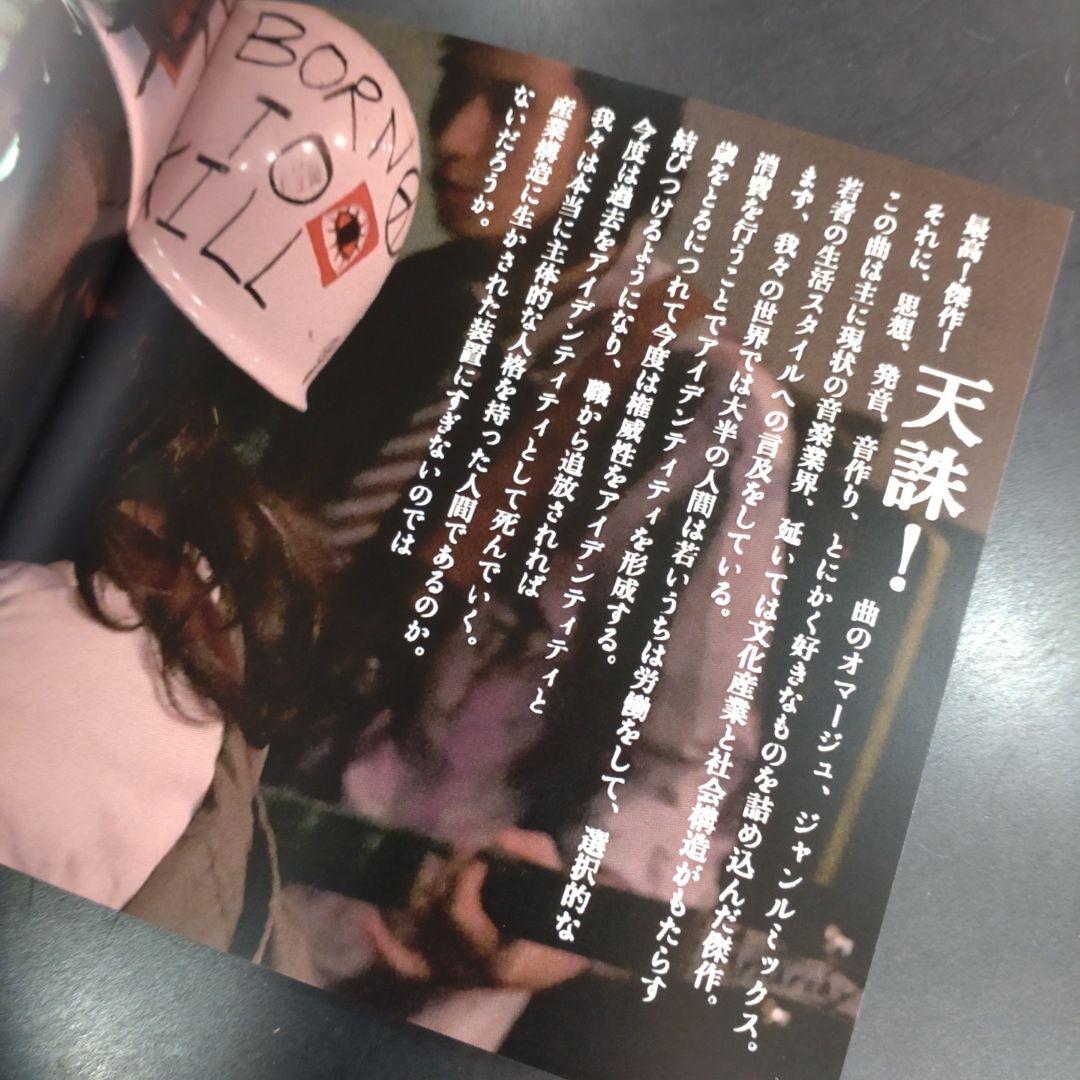 BORN
TO
KILL
天誅!
最高!傑作! 曲のオマージュ、ジャンルミックス。
それに、思想、発音、音作り、とにかく好きなものを詰め込んだ傑作。
この曲は主に現状の音楽業界、延いては文化産業と社会構造がもたらす
若者の生活スタイルへの言及をしている。
まず、我々の世界では大半の人間は若いうちは労働をして、選択的な
消費を行うことでアイデンティティを形成する。
歳をとるにつれて今度は権威性をアイデンティティと
結びつけるようになり、職から追放されれば
今度は過去をアイデンティティとして死んでいく。
我々は本当に主体的な人格を持った人間であるのか。
産業構造に生かされた装置にすぎないのでは
ないだろうか。